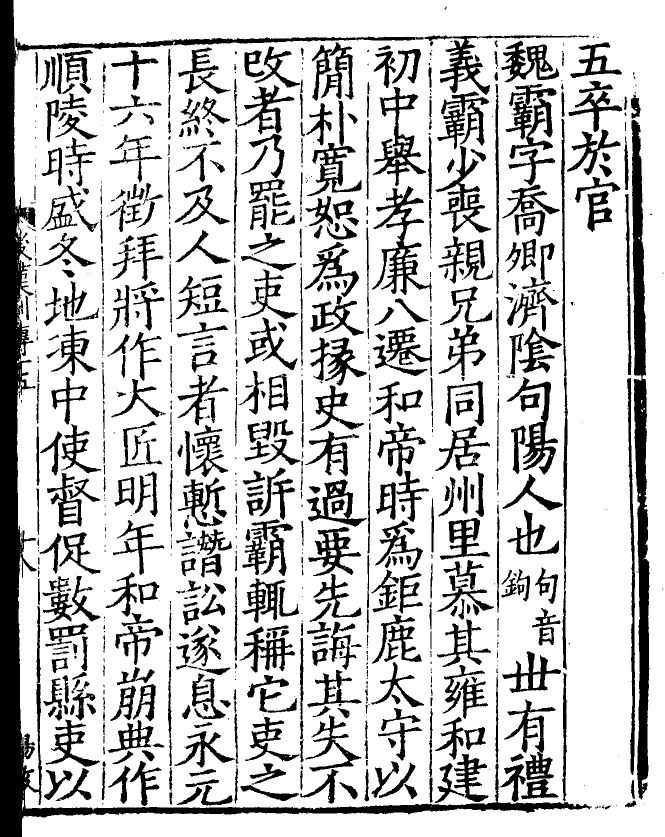 五卒於官
魏霸字喬卿濟陰句陽人也句音鉤丗有禮
義霸少喪親兄弟同居州里慕其雍和建
初中舉孝廉八遷和帝時爲鉅鹿太守以
簡朴寬恕爲政掾史有過要先誨其失不
改者乃罷之吏或相毀訴霸輒稱它吏之
長終不及人短言者懷慙譖訟遂息永元
十六年徵拜將作大匠明年和帝崩典作
順陵時盛冬地凍中使督促數罰縣吏以